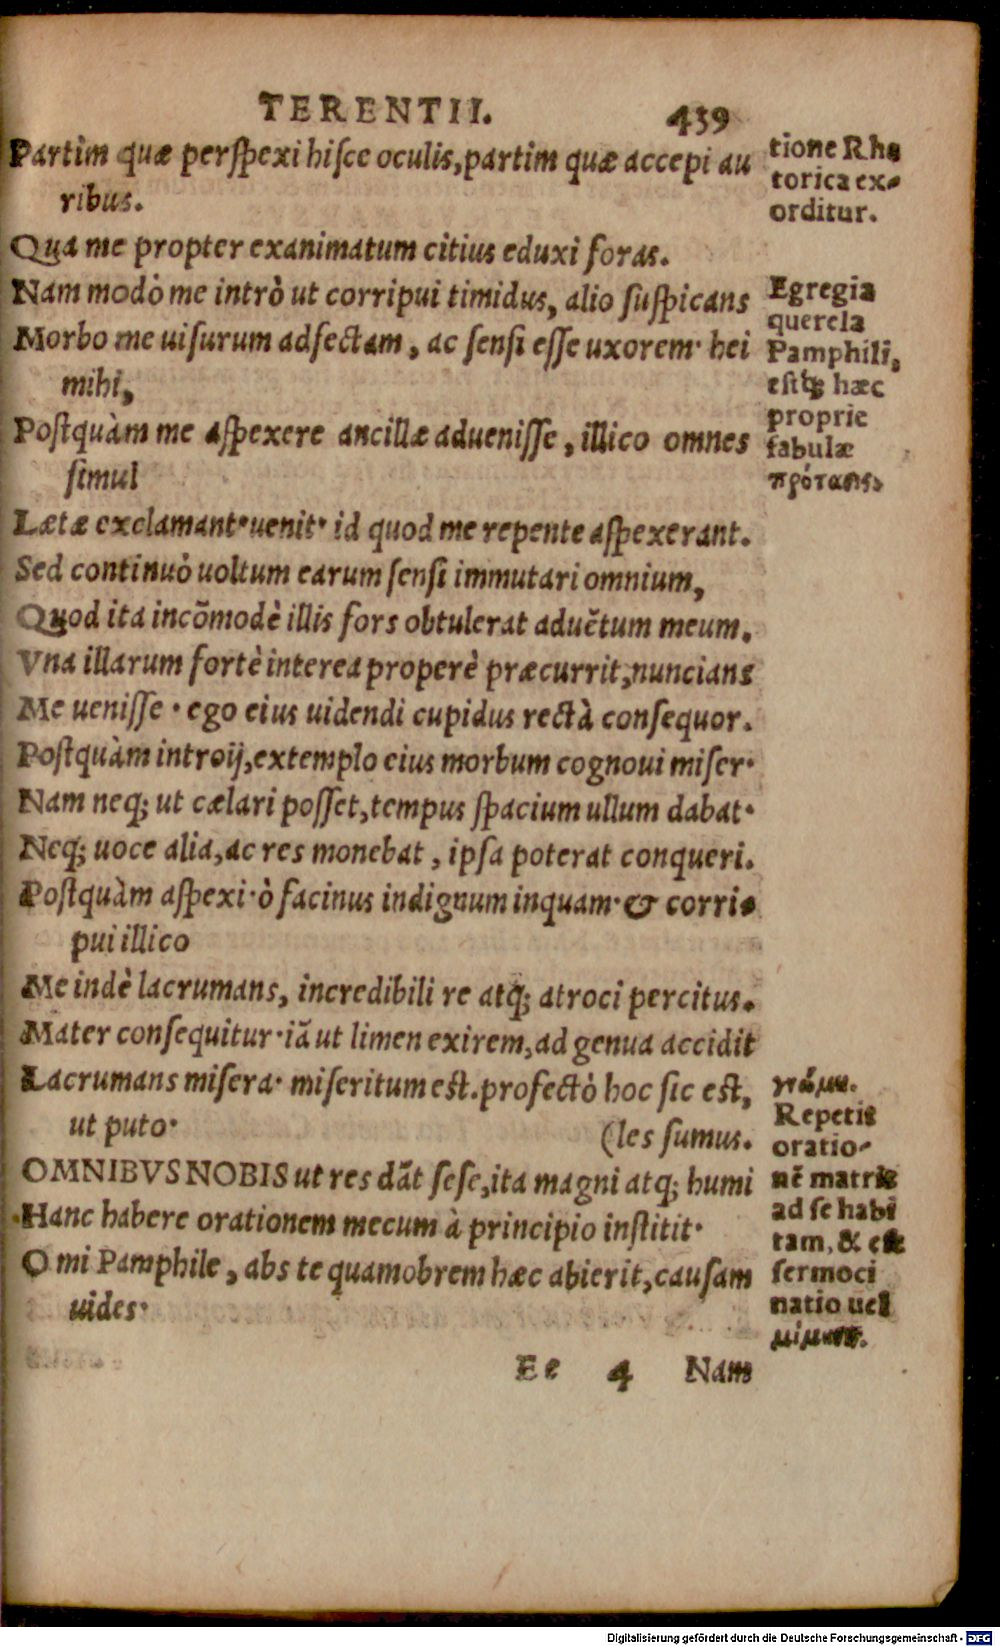 TERENTII. 439
Partim quæ perſpexi hiſce oculis, partim quæ accepi au
ribus.
Qua me propter exanimatum citius eduxi foras.
Nam modò me intrò ut corripui timidus, alio ſuſpicans
Morbo me uiſurum adfectam, ac ſenſi eſſe uxorem· hei
mihi,
Poſtquàm me aſpexere ancillæ adueniſſe, illico omnes
ſimul
Lætæ exclamant·uenit· id quod me repente aſpexerant.
Sed continuò uoltum earum ſenſi immutari omnium,
Quod ita incõmodè illis fors obtulerat aduẽtum meum.
Vna illarum fortè interea properè præcurrit, nuncians
Me ueniſſe· ego eius uidendi cupidus rectà conſequor.
Poſtquàm introij, extemplo eius morbum cognoui miſer·
Nam neq; ut cælari poſſet, tempus ſpacium ullum dabat·
Neq; uoce alia, ac res monebat, ipſa poterat conqueri.
Poſtquàm aſpexi·ò facinus indignum inquam·& corri-
pui illico
Me indè lacrumans, incredibili re atq; atroci percitus.
Mater conſequitur·iã ut limen exirem, ad genua accidit
Lacrumans miſera· miſeritum eſt. profectò hoc ſic eſt,
ut puto· (les ſumus.
OMNIBVS NOBIS ut res dãt ſeſe, ita magni atq; humi
Hanc habere orationem mecum à principio inſtitit·
O mi Pamphile, abs te quamobrem hæc abierit, cauſam
uides·
Ee 4 Nam
tione Rhe
torica ex-
orditur.
Egregia
querela
Pamphili,
eſtq; hæc
proprie
fabulæ
πρότασις.
γνώμη.
Repetit
oratio-
nẽ matris
ad ſe habi
tam, & eſt
ſermoci
natio uel
μίμησις.
Digitalisierung gefördert durch die Deutsche Forschungsgemeinschaft - DFG